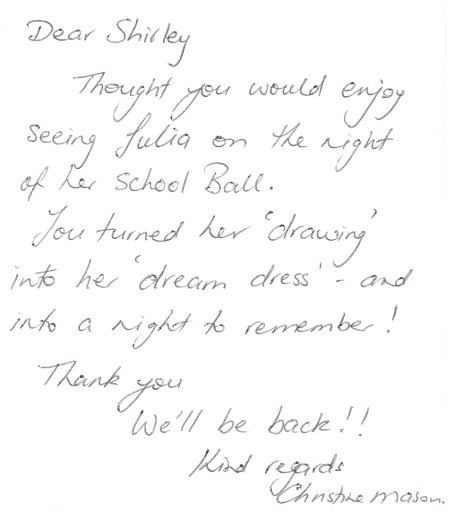 Dear Shirley
Thought you would enjoy
seeing Julia on the night
of her School Ball.
You turned her 'drawing'
into her 'dream dress' - and
into a night to remember!
Thank you
We'll be back!!
Kind regards
Christine Mason.